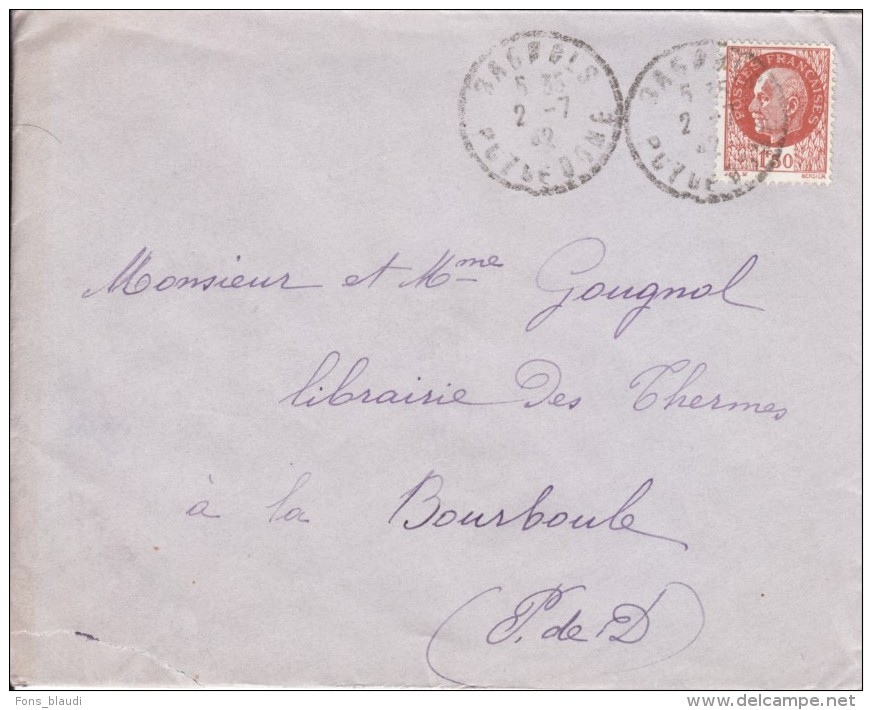 BAGNOLS
5 35
2 -7
42
PUY DE DOME
POSTES FRANÇAISES
1F50
BERSIER
Monsieur et Mme Gougnol
librairie des Thermes
à la Bourboule
(P. de D)
Fons_blaudi
www.delcampe.net